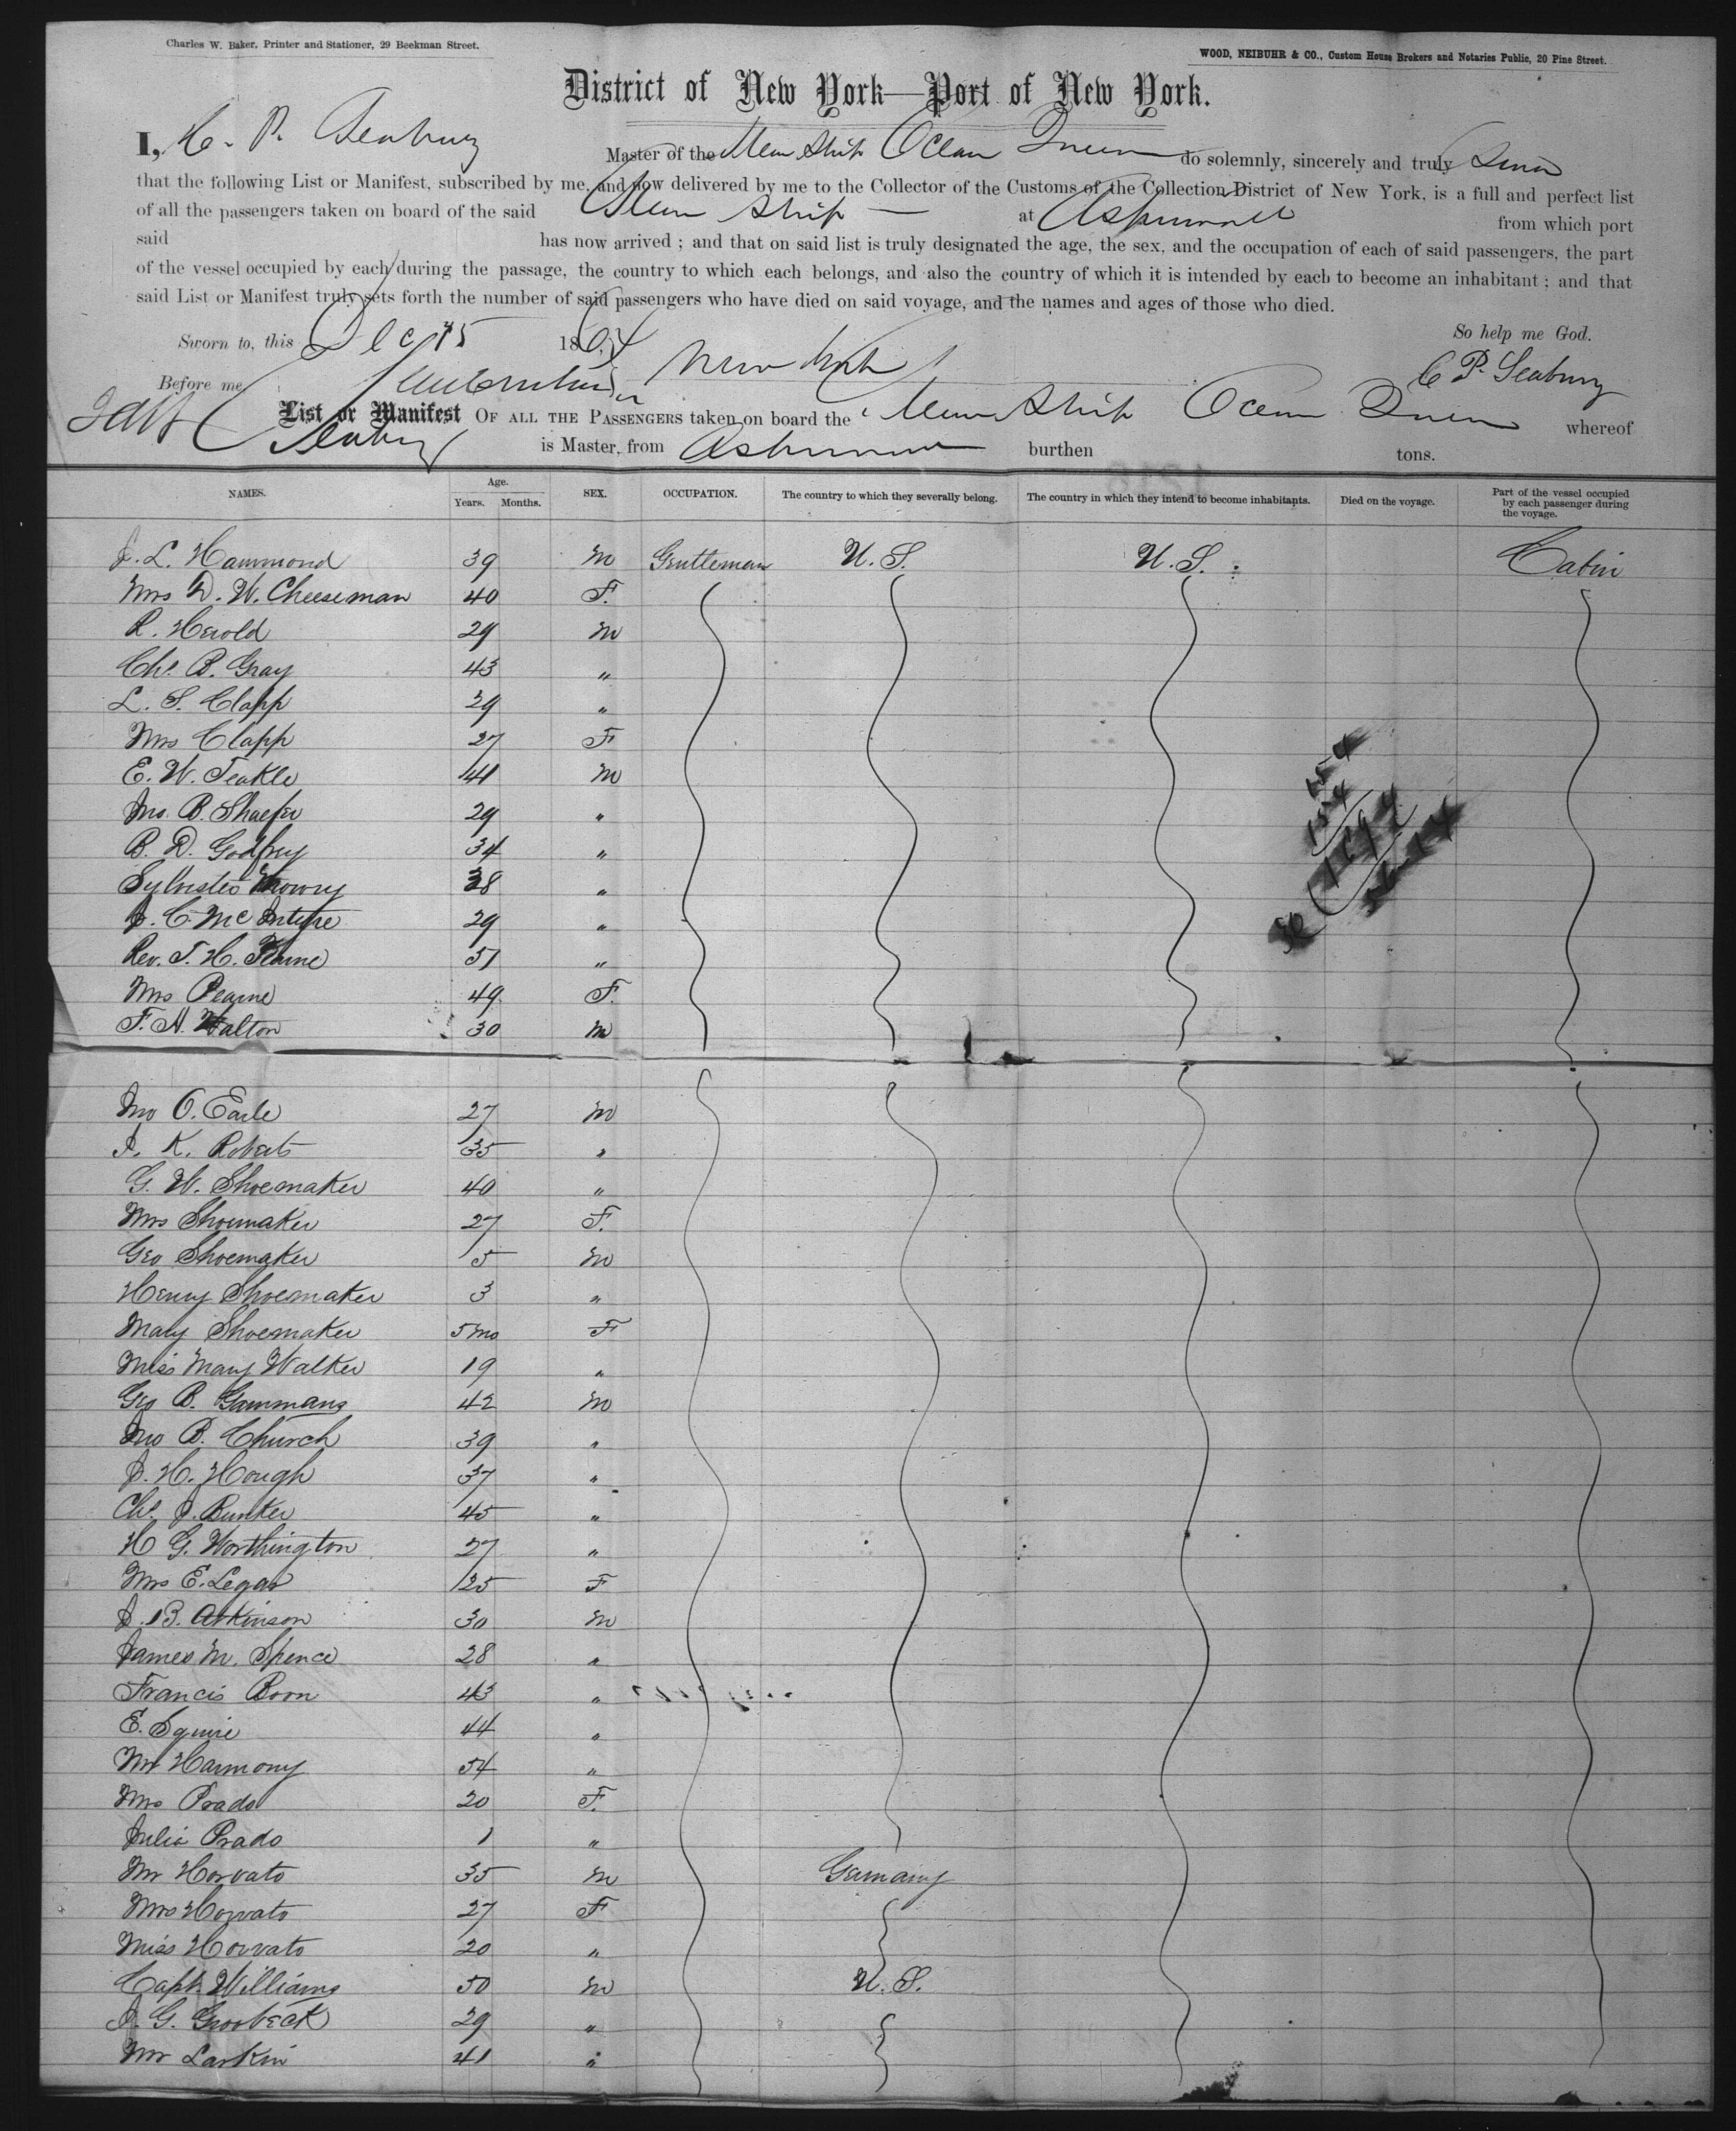 Charles W. Baker, Printer and Stationer, 29 Beekman Street.
WOOD, NEIBUHR & CO., Custom House Brokers and Notaries Public, 20 Pine Street.
District of New York—Port of New York.
I, C. P. Seabury Master of the Steam Ship Ocean Queen do solemnly, sincerely and truly Swear
that the following List or Manifest, subscribed by me, and now delivered by me to the Collector of the Customs of the Collection District of New York, is a full and perfect list
of all the passengers taken on board of the said Steam Ship at Aspinwall from which port
said has now arrived ; and that on said list is truly designated the age, the sex, and the occupation of each of said passengers, the part
of the vessel occupied by each during the passage, the country to which each belongs, and also the country of which it is intended by each to become an inhabitant ; and that
said List or Manifest truly sets forth the number of said passengers who have died on said voyage, and the names and ages of those who died.
Sworn to, this Dec 15 1864 So help me God.
Before me New York C P. Seabury
List or Manifest OF ALL THE PASSENGERS taken on board the Steam Ship Ocean Queen whereof
Seabury is Master, from Aspinwall burthen tons.
NAMES. Age. Years. Months. SEX. OCCUPATION. The country to which they severally belong. The country in which they intend to become inhabitants. Died on the voyage. Part of the vessel occupied by each passenger during the voyage.
J. L. Hammond 39 M Gentleman U. S. U. S. Cabin
Mrs D. W. Cheeseman 40 F.
R. Herold 29 M
Chs. B. Gray 43 "
L. S. Clapp 29 "
Mrs Clapp 27 F
E. W. Teakle 41 M
Jno. B. Shaefer 29 "
B. D. Godfrey 34 "
Sylvester Mowry 38 "
J. C. McIntyre 29 "
Rev. T. H. Pearne 51 "
Mrs Pearne 49 F.
F. A. Walton 30 M
Jno O. Earle 27 M
J. K. Roberts 35 "
G. W. Shoemaker 40 "
Mrs Shoemaker 27 F.
Geo Shoemaker 5 M
Henry Shoemaker 3 "
Mary Shoemaker 5 mo F
Miss Mary Walker 19 "
Geo B. Gammans 42 M
Jno B. Church 39 "
J. H. Hough 37 "
Chs. J. Bunker 45 "
H G. Worthington 27 "
Mrs E. Legar 25 F
J. B. Atkinson 30 M
James M. Spence 28 "
Francis Boon 43 "
E. Squire 44 "
Mr Harmony 54 "
Mrs Prado 20 F.
Julia Prado 1 "
Mr Horvato 35 M Germany
Mrs Horvato 27 F
Miss Horvato 20 "
Capt. Williams 50 M U. S.
J. G. Groobeck 29 "
Mr Larkin 41 "